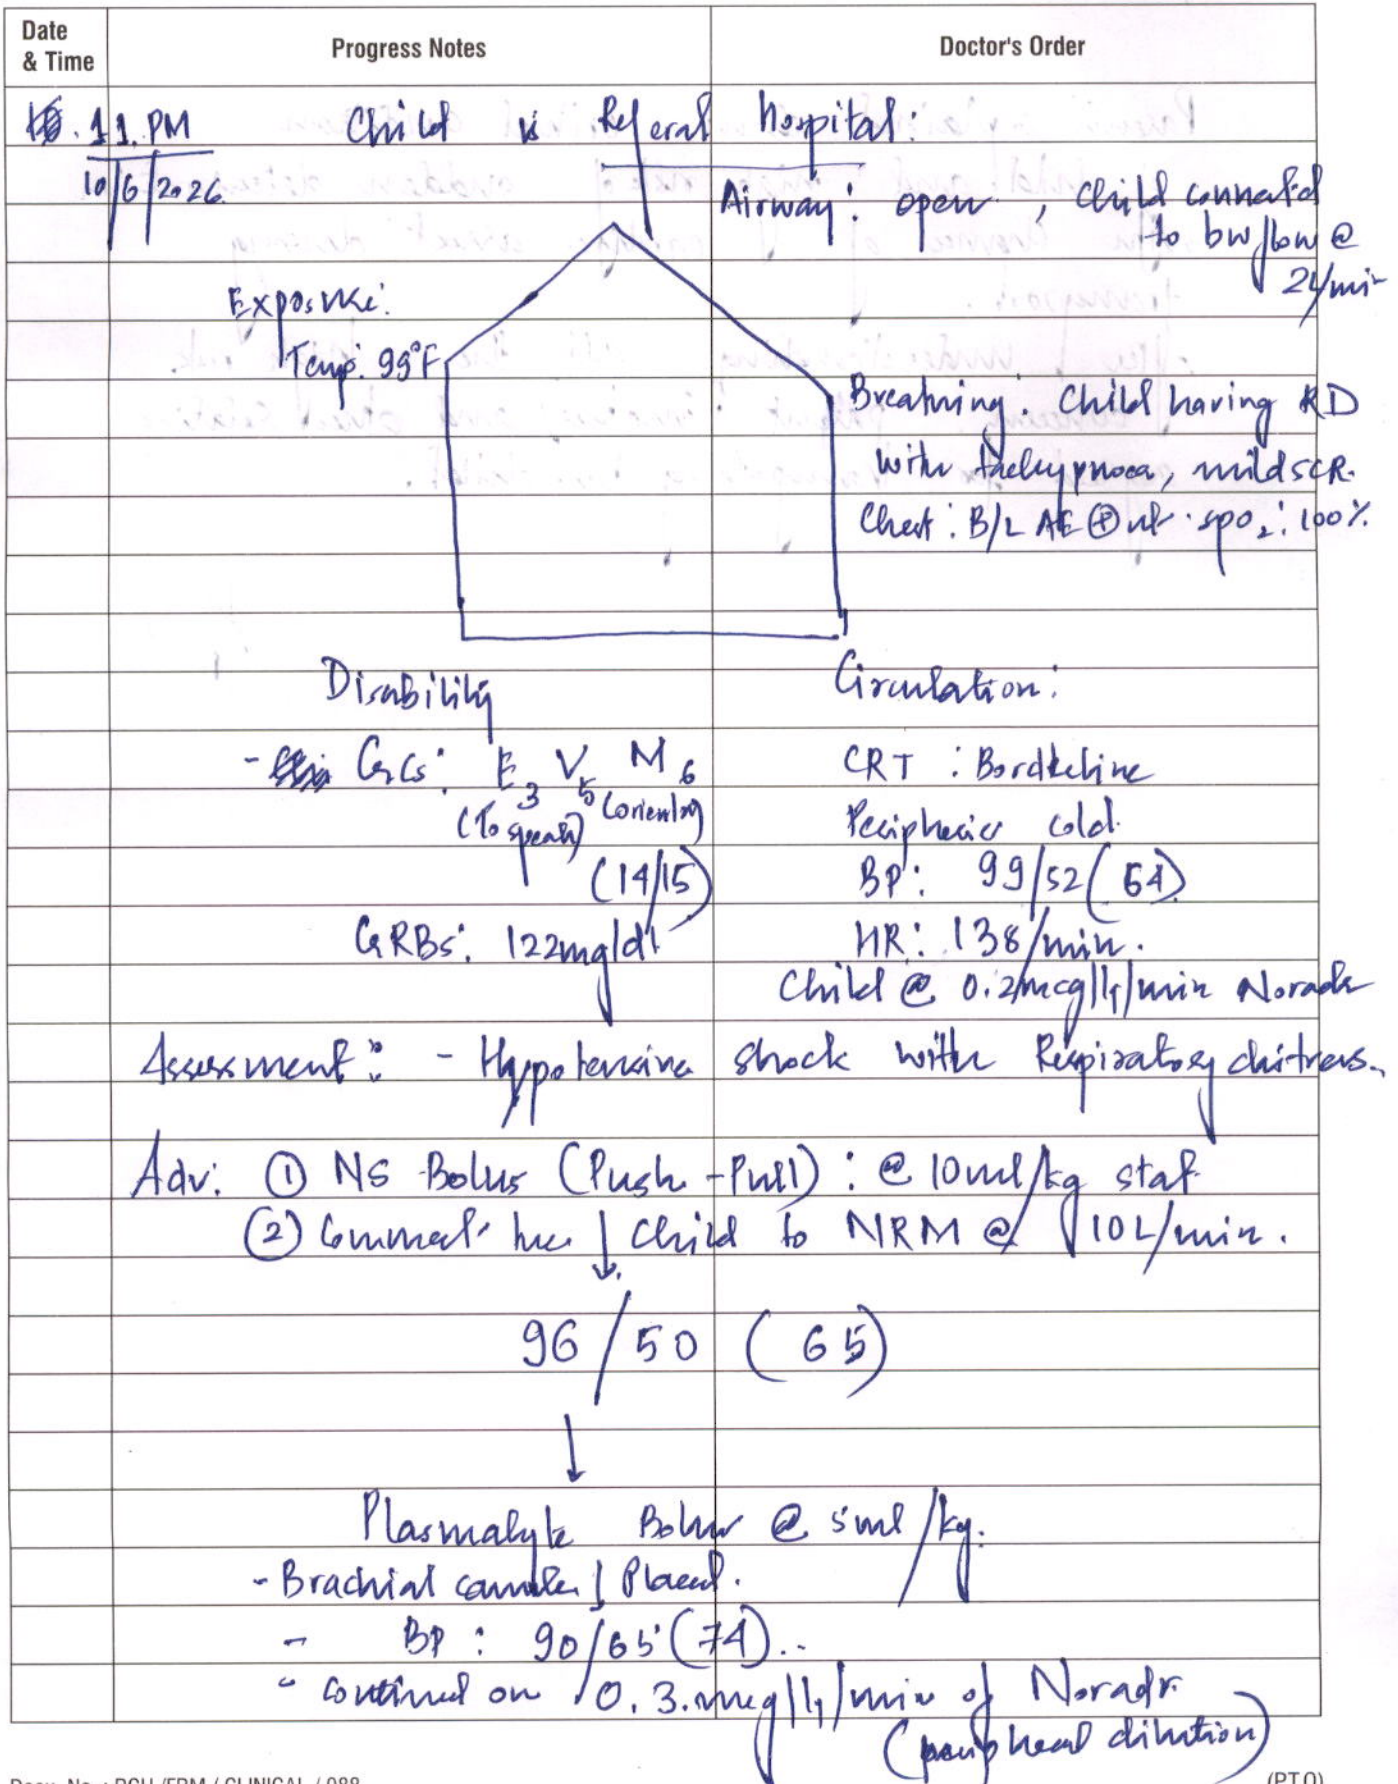 Date & Time
Progress Notes
Doctor's Order
11.PM
10/6/2026
Child is Referal hospital:
Airway: open, Child connected
to bw flow @
2L/min
Exposure:
Temp: 99°F
Breathing: Child having RD
with tachypnoea, mild SCR.
Chest: B/L AE ⊕ nt. spo₂: 100%
Disability
- GCS: E₃ V₅ M₆
(To speach) (oriented)
(14/15)
GRBS: 122mg/dl
Circulation:
CRT: Borderline
Peripheries cold.
BP: 99/52 (64)
HR: 138/min.
Child @ 0.2mcg/kg/min Noradr
Assessment: - Hypotensive shock with Respiratory distress.
Adv: ① NS Bolus (Push-Pull): @ 10ml/kg stat
② Connect Child to NRM @ 10L/min.
↓
96/50 (65)
↓
Plasmalyte Bolus @ 5ml/kg.
- Brachial cannula Placed.
↓
- BP: 90/65 (74)..
- continued on 0.3.mcg/kg/min of Noradr
(peripheral dilution)
(P.T.O)